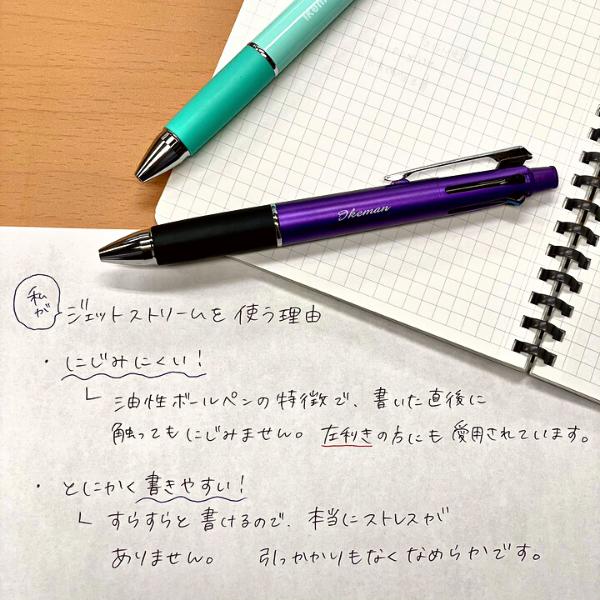 Ikeman
私が
ジェットストリームを使う理由
・にじみにくい！
└ 油性ボールペンの特徴で、書いた直後に
触ってもにじみません。左利きの方にも愛用されています。
・とにかく書きやすい！
└ すらすらと書けるので、本当にストレスが
ありません。 引っかかりもなくなめらかです。